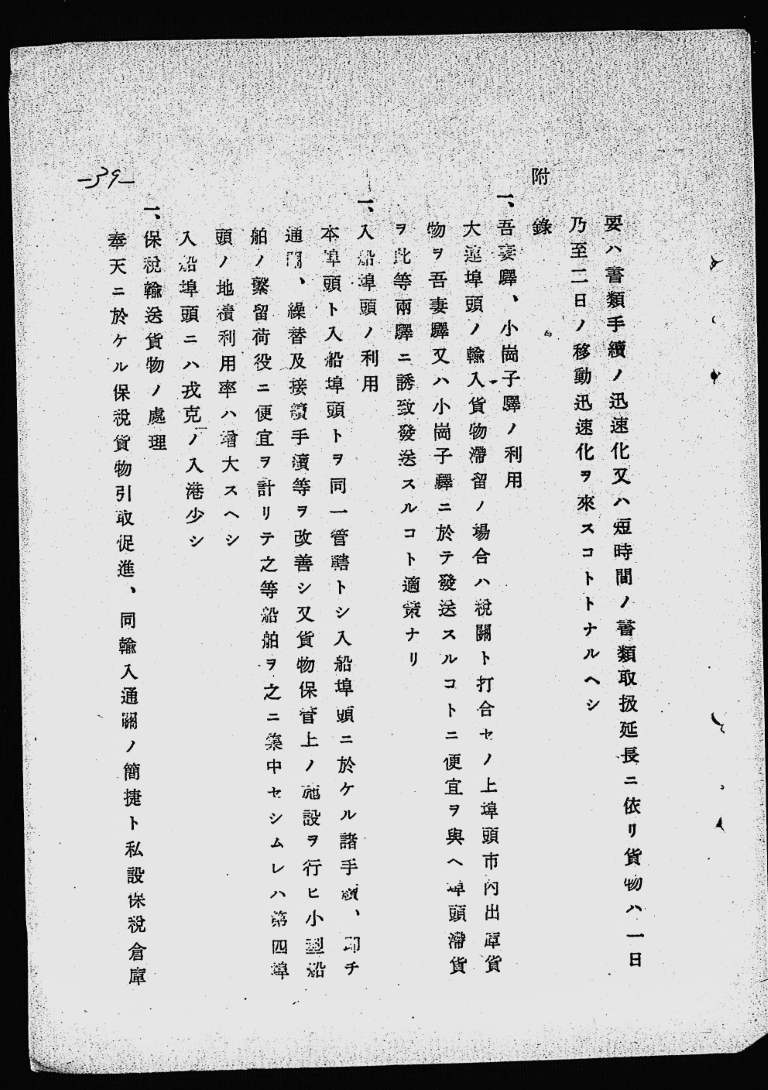 要ハ書類手續ノ迅速化又ハ短時間ノ書類取扱延長ニ依リ貨物ハ一日
乃至二日ノ移動迅速化ヲ來スコトトナルヘシ
附錄
一、吾妻驛、小崗子驛ノ利用
大連埠頭ノ輸入貨物滯留ノ場合ハ稅關ト打合セノ上埠頭市內出庫貨
物ヲ吾妻驛又ハ小崗子驛ニ於テ發送スルコトニ便宜ヲ與ヘ埠頭滯貨
ヲ此等兩驛ニ誘致發送スルコト適策ナリ
一、入船埠頭ノ利用
本埠頭ト入船埠頭トヲ同一管轄トシ入船埠頭ニ於ケル諸手續、卽チ
通關、繰替及接續手續等ヲ改善シ又貨物保管上ノ施設ヲ行ヒ小型船
舶ノ繫留荷役ニ便宜ヲ計リテ之等船舶ヲ之ニ集中セシムレハ第四埠
頭ノ地積利用率ハ增大スヘシ
入船埠頭ニハ戎克ノ入港少シ
一、保稅輸送貨物ノ處理
奉天ニ於ケル保稅貨物引取促進、同輸入通關ノ簡捷ト私設保稅倉庫
-39-